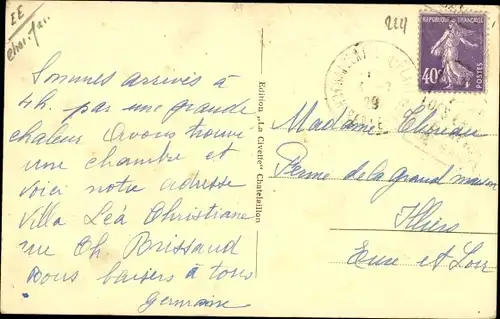 EE
Char. Mar.
224
RÉPUBLIQUE FRANÇAISE
40c
POSTES
29
Sommes arrivés à
4h. par une grande
chaleur Avons trouvé
une chambre et
voici notre adresse
Villa Léa Christiane
rue Ch Brissaud
Bons baisers à tous
Germaine
Edition „La Civette" Chatelaillon
Madame Thoreau
Ferme de la Grand maison
Illiers
Eure et Loir